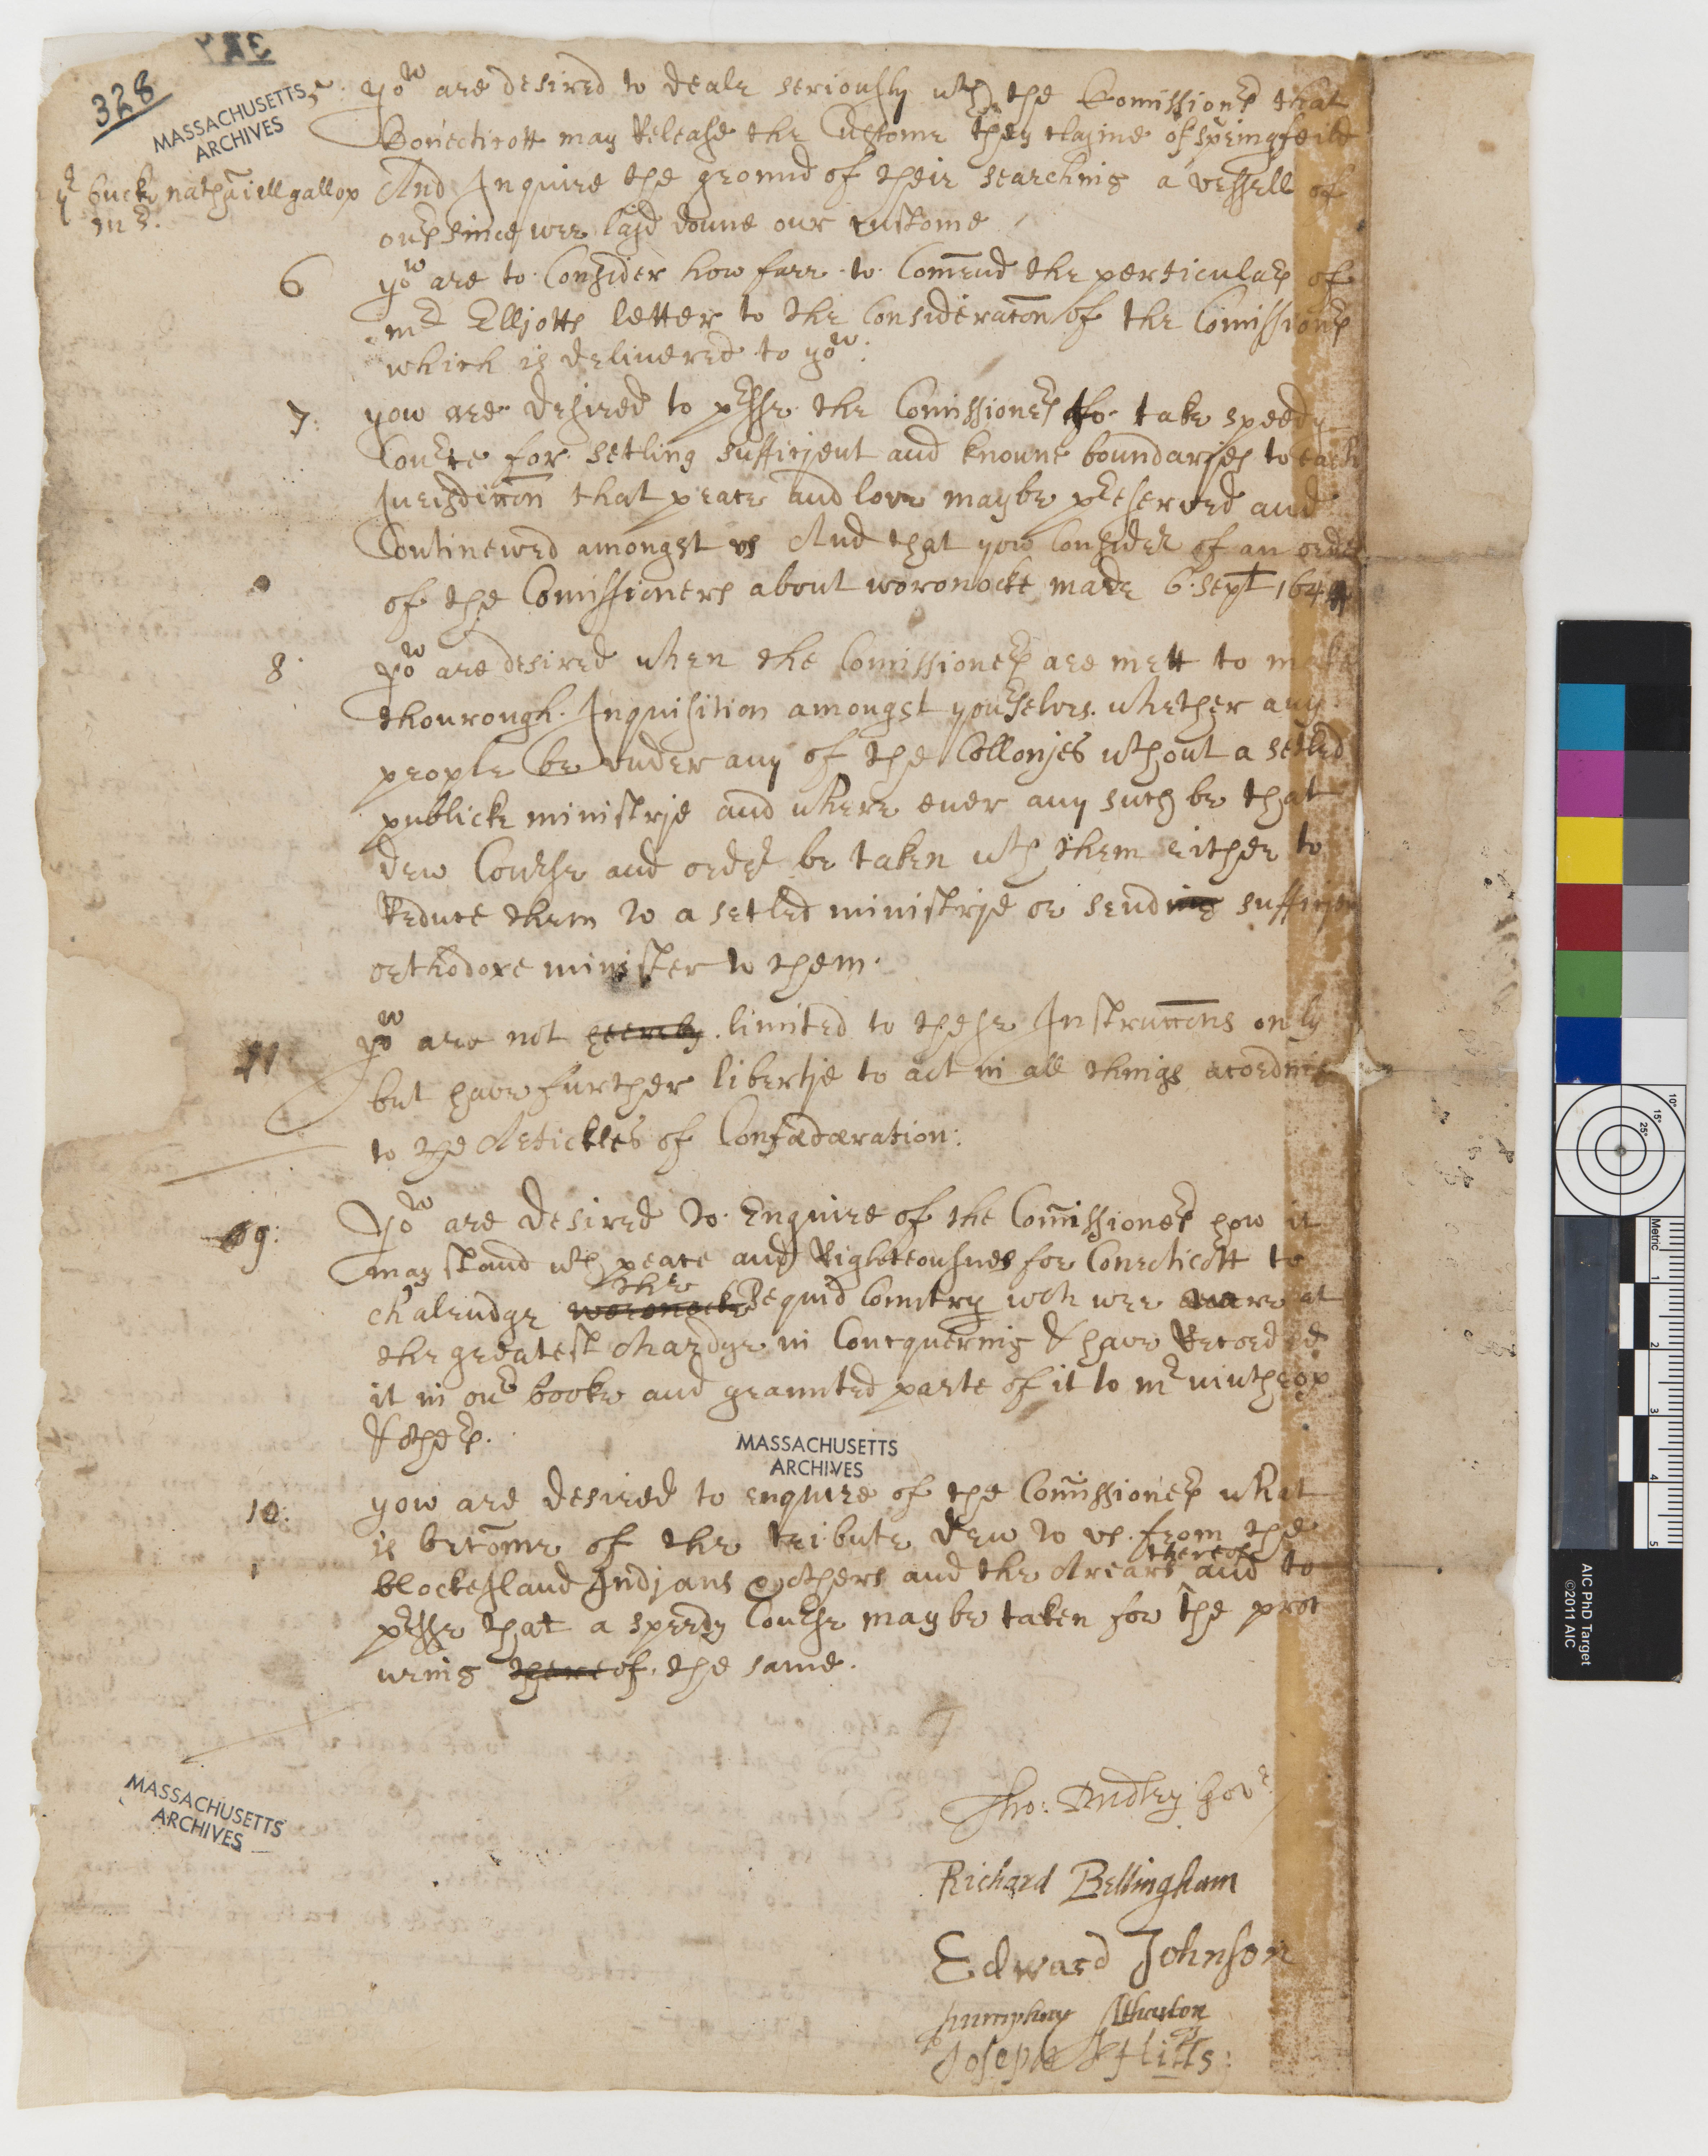 328
MASSACHUSETTS
ARCHIVES
5 yow are desired to deale seriously wth the Comissionrs that
Conecticott may Release the Custome they clayme of Springfeild
And Inquire the ground of their searching a vessell of
ours since wee layd doune our custome
buck nathaniell gallop
mr.
6 yow are to Consider how farr to Comend the perticulars of
mr Elljotts letter to the Consideracon of the Comissionrs
which is delivered to yow:
7: yow are desired to presse the Comissionrs to take speedy
Course for setling suffitjent and knoune boundarjes to each
Jurisdiccon that peace and love may be preserved and
Continewed amongst vs And that yow Consider of an order
of the Comissioners about woronocke made 6 Sept 1644
8 yow are desired when the Comissionrs are mett to make
thourough Inquisition amongst yourselves whether any
people be vnder any of the Collonjes wthout a setled
publicke ministrje and where ever any such be that
dew Course and order be taken wth them either to
Reduce them to a setled ministrje or sending suffitjent
orthodoxe minister to them.
11 yow are not heereby limited to these Instruccons only
but have further libertje to act in all things acording
to the Artickles of Confæderation:
9: Yow are desired to Enquire of the Comissionrs how it
may stand wth peace and Righteousnes for Conecticott to
the
chalendge woronocke Pequid Country wch wee weare at
the greatest chardge in Concquering & have Recorded
it in our booke and graunted parte of it to mr winthrop
& others.
MASSACHUSETTS
ARCHIVES
10: yow are desired to enquire of the Comissionrs what
is become of the tribute dew to vs from the
thereof
blocke Iland Indjans & others and the Arears and to
presse that a speedy Course may be taken for the proc
uring thereof the same.
MASSACHUSETTS
ARCHIVES
Tho: Dudley Govr
Richard Bellingham
Edward Johnson
Humphrey Atherton
Joseph Hills:
Metric
1
2
3
4
5
10°
15°
25°
AIC PhD Target
©2011 AIC